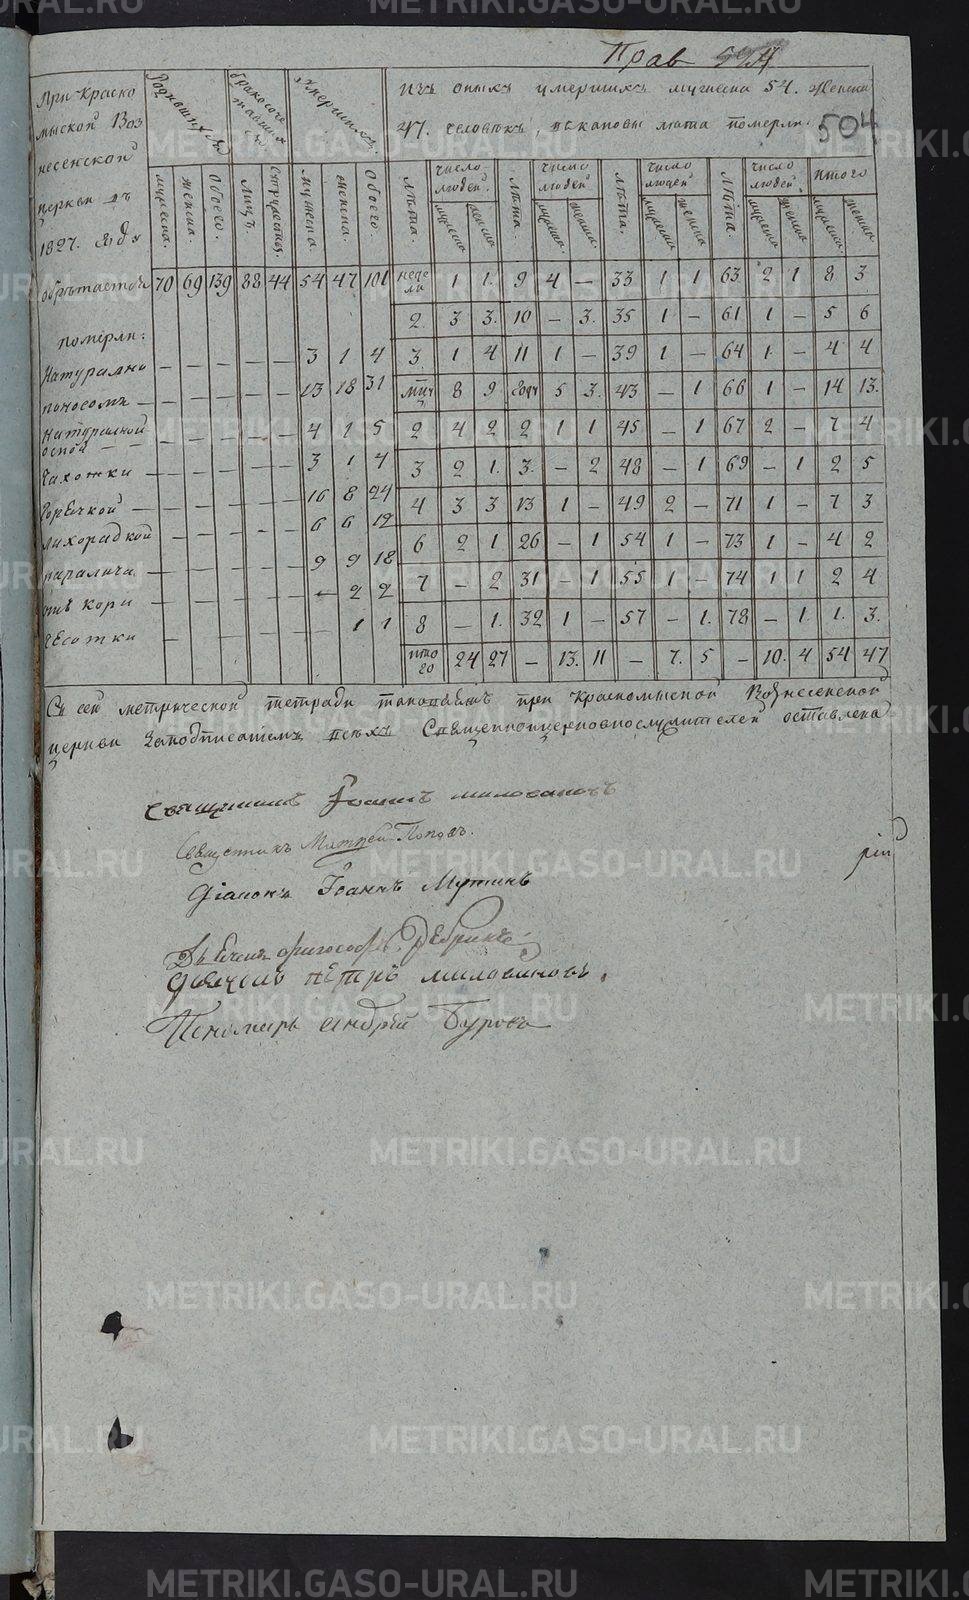 Прав 504
504
При Краско
мыской Воз
несенской
церкви въ
1827. годъ
обрѣтается
Родившихся
бракосоче
тавших
ся
умершихъ.
изъ оныхъ умершихъ мужеска 54. Женска
47. человѣкъ, каковы лѣта померли.
мужеска. женска. Обоего. Лицъ. мужеска женска Обоего.
лѣта. число людей. лѣта. число людей. лѣта. число людей лѣта. число людей. итого
мужеска женска мужеска. женска. мужеска женска мужеска женска мужеска женска
70 69 139 88 44 54 47 101 неде ли 1 1. 9 4 — 33 1 1 63 2 1 8 3
2. 3 3. 10 — 3. 35 1 — 61 1 — 5 6
померли:
Натурално — — — — — 3 1 4 3 1 4 11 1 — 39 1 — 64 1 — 4 4
поносомъ — — — — — — 13 18 31 8 9 годы 5 3. 43 — 1 66 1 — 14 13.
Натуралной
оспой — — — — — — — 4 1 5 2 4 2 2 1 1 45 — 1 67 2 — 7 4
Чахотки — — — — — — 3 1 4 3 2 1. 3. — 2 48 — 1 69 — 1 2 5
Горячкой — — — — — — 16 8 24 4 3 3 13 1 — 49 2 — 71 1 — 7 3
лихорадкой — — — — — 6 6 12 6 2 1 26 — 1 54 1 — 73 1 — 4 2
паралича — — — — — — 9 9 18 7 — 2 31 — 1 55 1 — 74 1 1 2 4
отъ кори — — — — — — — 2 2 8 — 1. 32 1 — 57 — 1. 78 — 1 1. 3.
чесотки — — — — — — 1 1 ито го 24 27 — 13. 11 — 7. 5 — 10. 4 54 47
Съ сей метрической тетради таковаяжъ при Краскомыской Вознесенской
церкви заподписаніемъ всѣхъ Священноицерковнослужителей оставлена
Священникъ Іоаннъ Миловановъ
Священникъ Матѳей Поповъ.
Діаконъ Іоаннъ Мутинъ
Дьячекъ Дебринъ
Дьячекъ Петръ Миловановъ.
Пономарь Андрей Буровъ